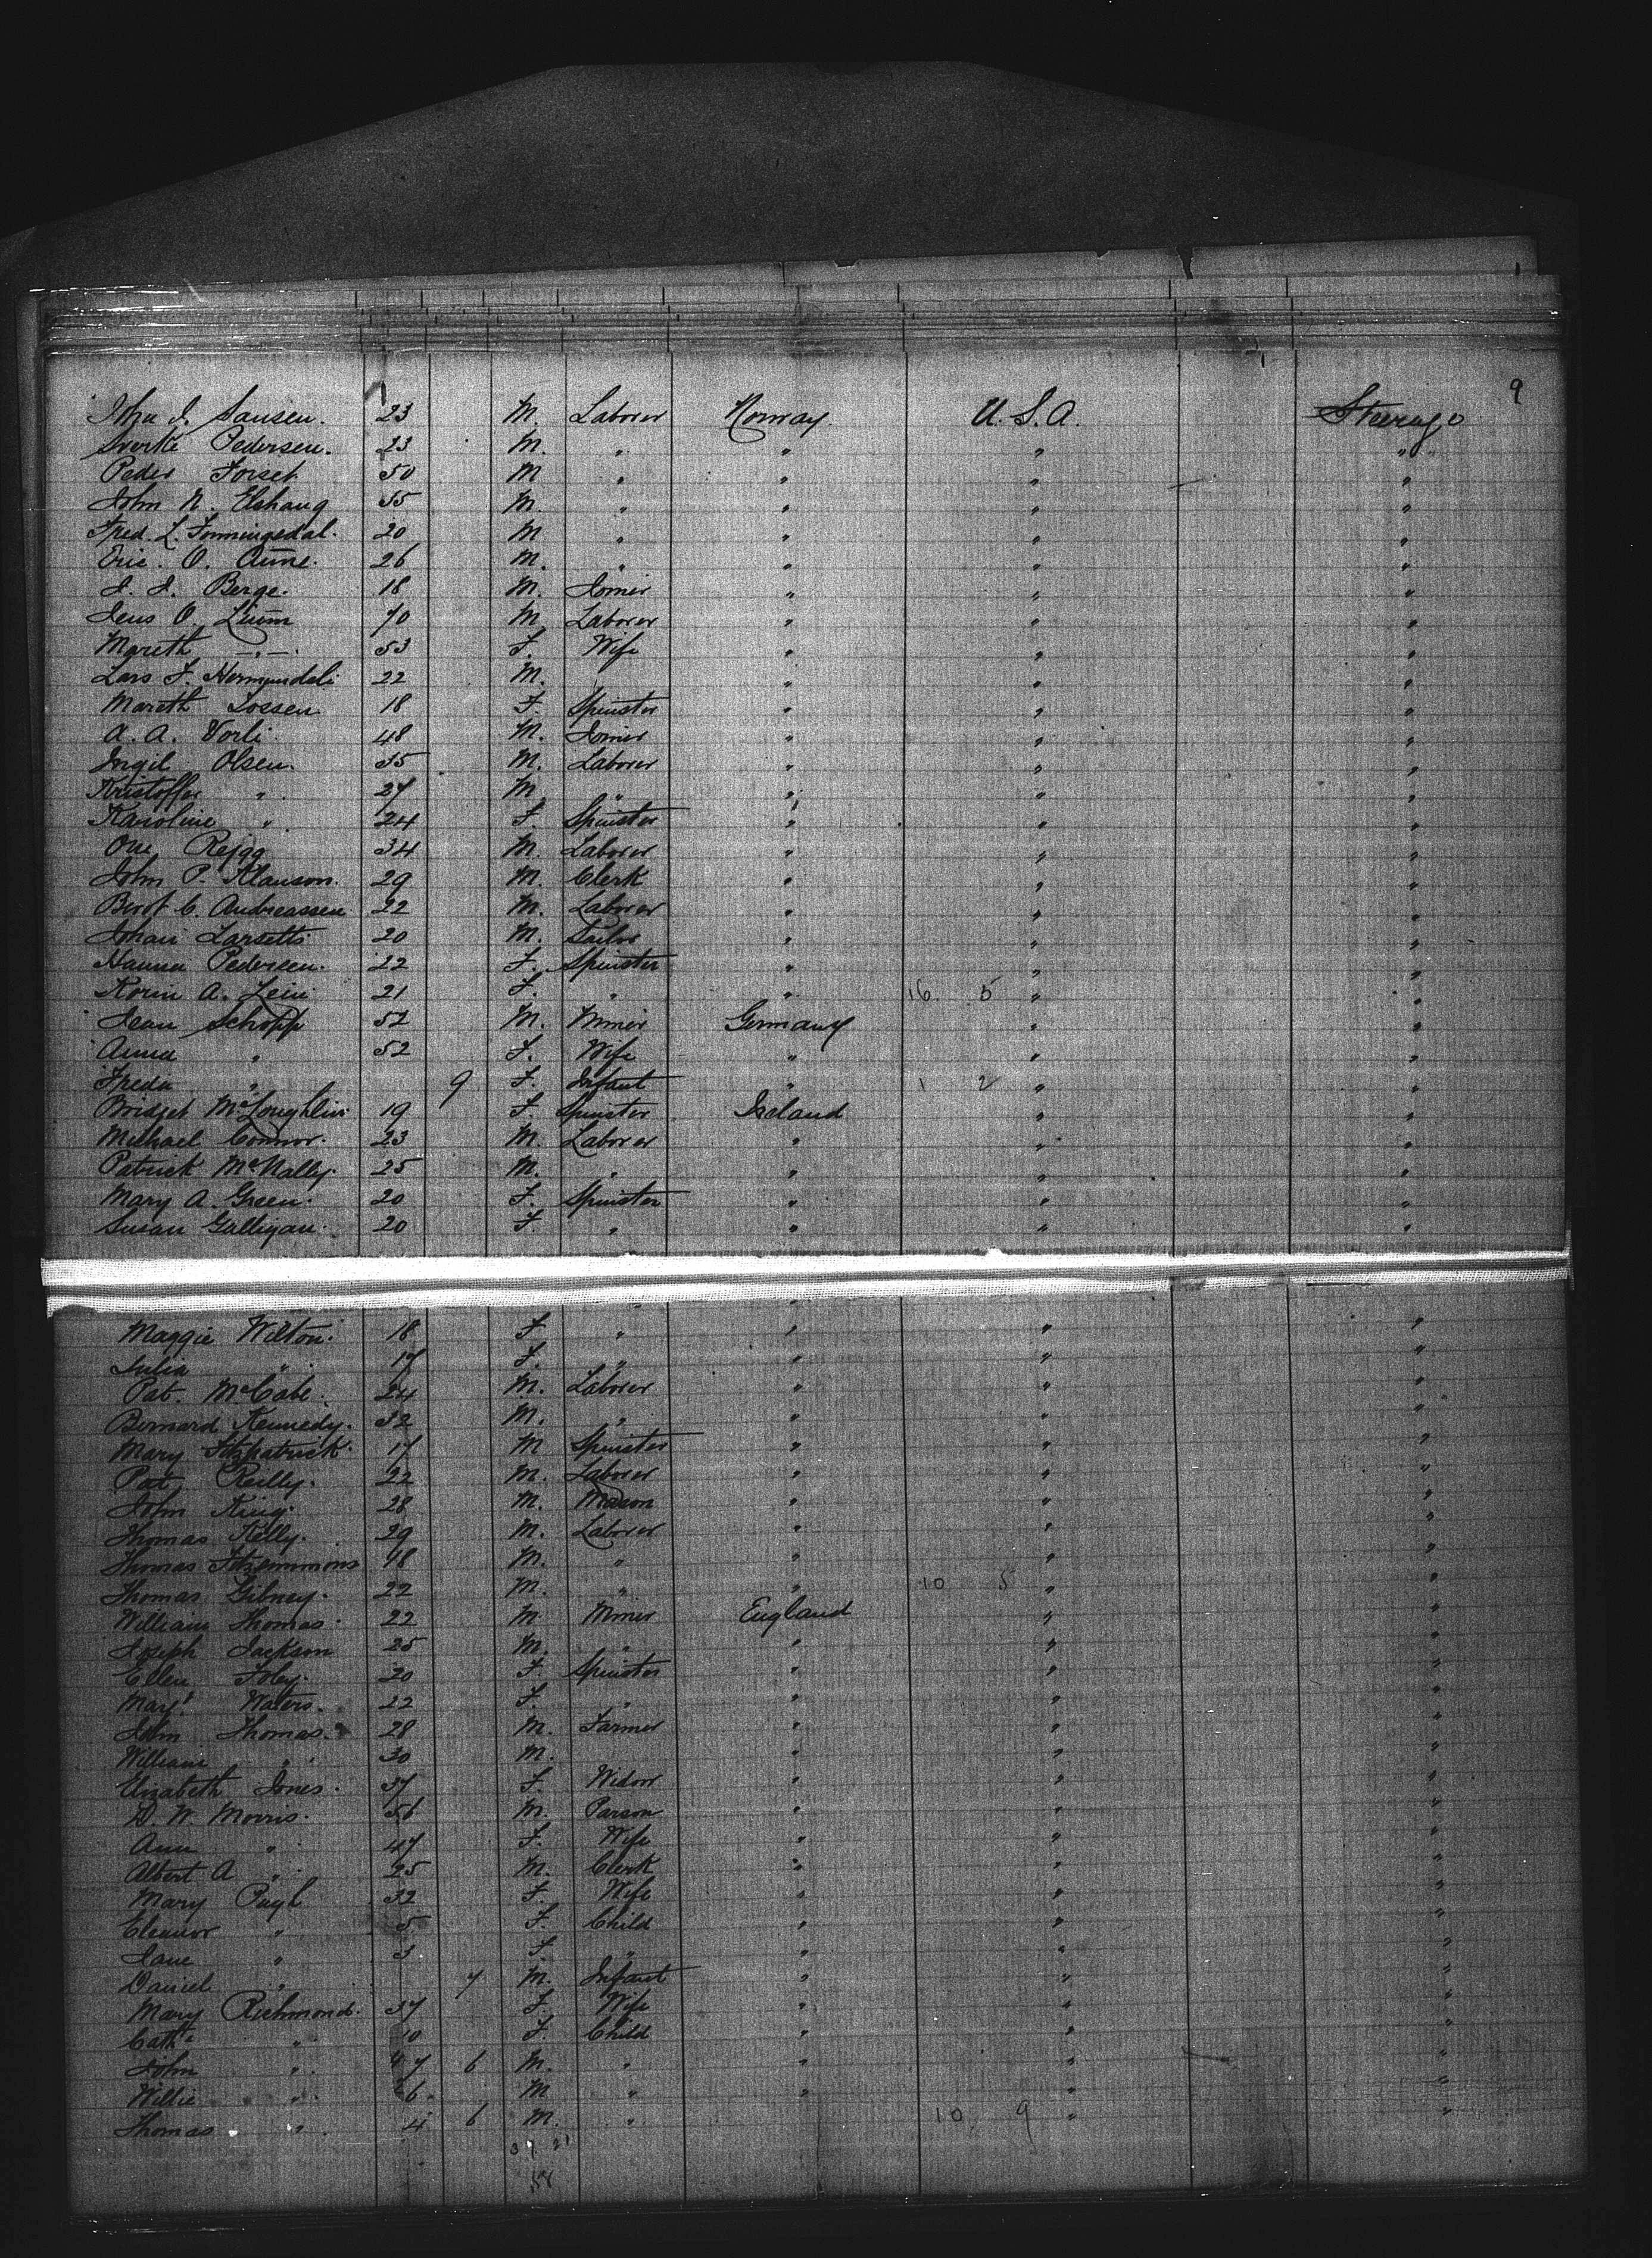 9
John J. Jansen. 23 M. Laborer Norway. U.S.A. Steerage
Sverke Pedersen. 23 M. " " " "
Peder Forset 50 M " " " "
John N. Elshaug 55 M. " " " "
Fred. L. Fonningsdal. 20 M " " " "
Eric. O. Aune. 26 M. " " " "
J. J. Berge. 18 M. Joiner " " "
Jens O. Lium 70 M Laborer " " "
Mareth -"-. 53 F. Wife " " "
Lars F. 22 M. " " "
Mareth Lossen 18 F. Spinster " " "
A. A. Vorli. 48 M. Joiner " " "
Ingil Olsen. 35 M. Laborer " " "
Kristoffer " 27 M " " " "
Karoline " 24 F. Spinster " " "
One 34 M. Laborer " " "
John P. Klauson. 29 M. Clerk " " "
C. Andreassen 22 M. Laborer " " "
Johan Larsetts 20 M. Tailor " " "
Hanna Pedersen. 22 F. Spinster " " "
Korin A. Lein 21 F. " " 16 5 " "
Jean Schopp 52 M. Miner Germany " "
Anna " 52 F. Wife " " "
Freda " 9 F. Infant " 1 2 " "
Bridget McLoughlin 19 F Spinster Ireland " "
Michael Connor. 23 M. Laborer " " "
Patrick McNally. 25 M. " " " "
Mary A. Green. 20 F. Spinster " " "
Susan Galligan. 20 F. " " " "
Maggie Wilton. 18 F. " " " "
Julia " 17 F. " " " "
Pat. McCabe. 24 M. Laborer " " "
Bernard Kennedy. 32 M. " " " "
Mary Fitzpatrick. 17 M Spinster " " "
Pat Reilly. 22 M. Laborer " " "
John King. 28 M. Mason " " "
Thomas Kelly. 29 M. Laborer " " "
Thomas Fitzsimmons 18 M. " " " "
Thomas Gibney. 22 M. " " 10 5 " "
William Thomas. 22 M. Miner England " "
Joseph Jackson 25 M. " " " "
Ellen Foley. 20 F. Spinster " " "
Mary. Waters. 22 F. " " " "
John Thomas. 28 M. Farmer " " "
William " 30 M. " " "
Elizabeth Jones. 37 F. Widow " " "
D. W. Morris. 56 M. Parson " " "
Ann " 47 F. Wife " " "
Albert A " 25 M. Clerk " " "
Mary Pugh 32 F. Wife " " "
Eleanor " 5 F. Child " " "
Jane " 3 F. " " " "
Daniel " 7 M. Infant " " "
Mary Richmond. 37 F. Wife " " "
Cath " 10 F. Child " " "
John " 7 6 M. " " " "
Willie " 6. M " " " "
Thomas " 4 6 M. " 10 9 " "
37 21
58